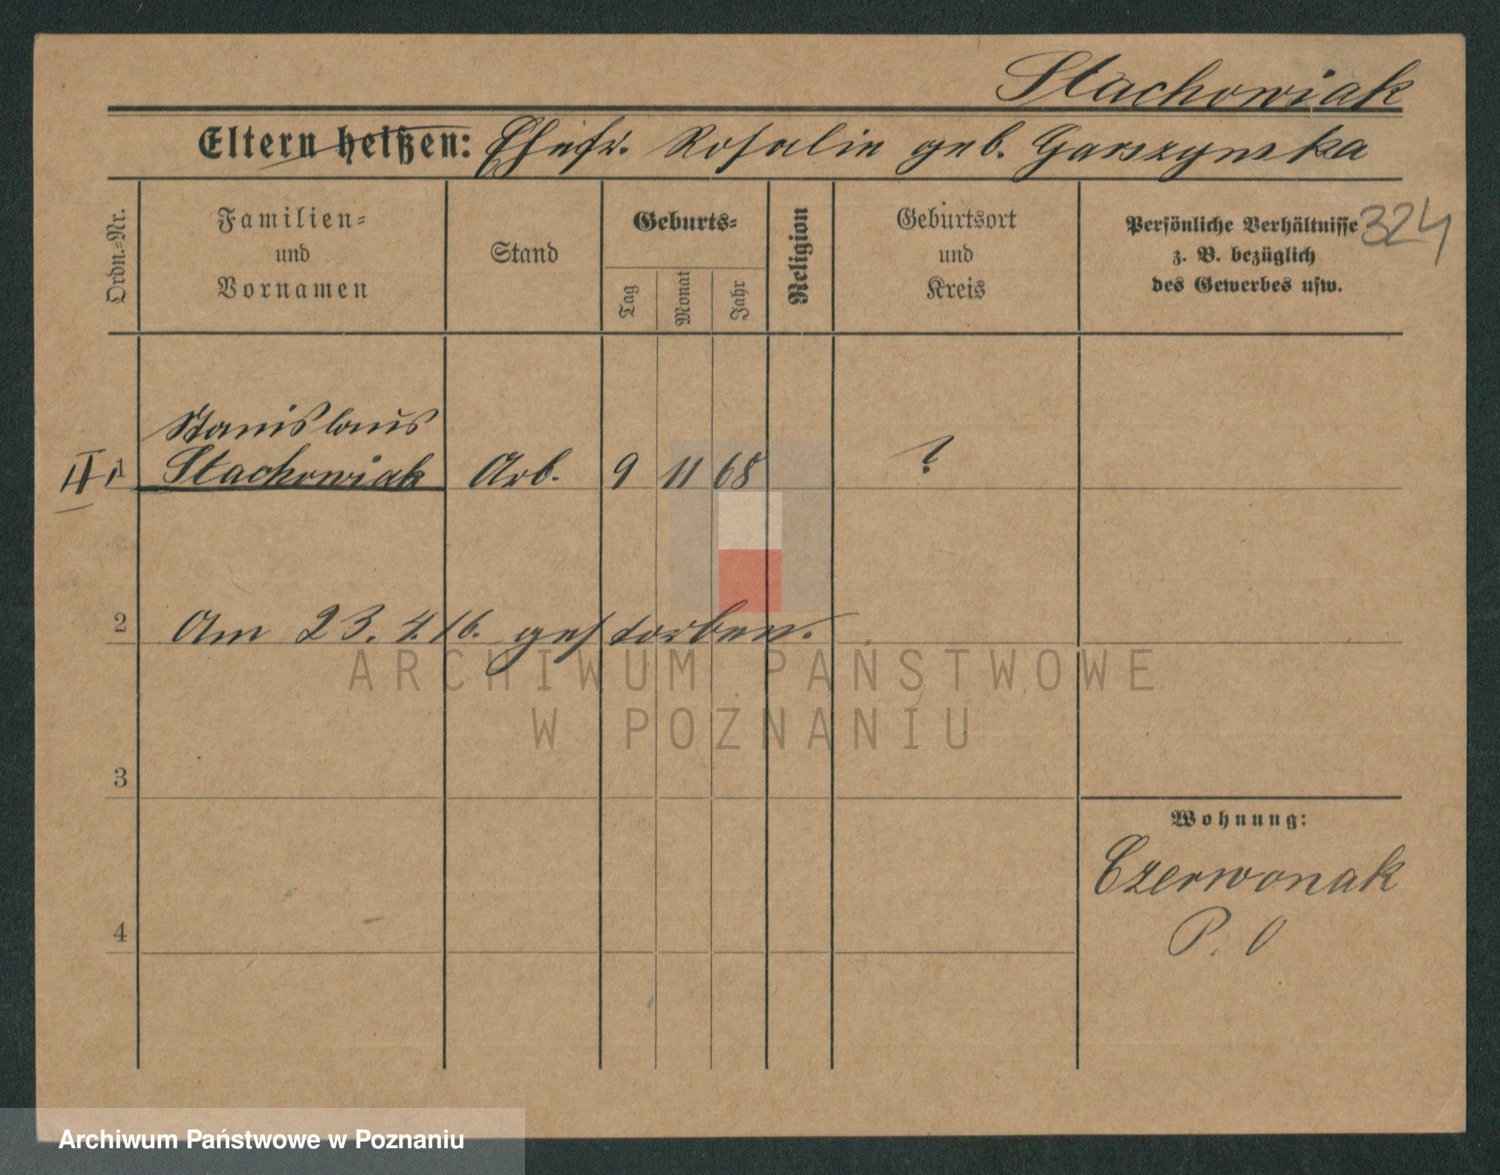 Stachowiak
Eltern heißen: Ehefr. Rosalie geb. Garszynska
Ordn.=Nr.
Familien=
und
Vornamen
Stand
Geburts=
Tag
Monat
Jahr
Religion
Geburtsort
und
Kreis
Persönliche Verhältnisse
z. B. bezüglich
des Gewerbes usw.
324
Stanislaus
II 1 Stachowiak Arb. 9 11 68 ?
2 Am 23. 4. 16. gestorben.
ARCHIWUM PAŃSTWOWE
W POZNANIU
3
Wohnung:
Czerwonak
4 P. O
Archiwum Państwowe w Poznaniu